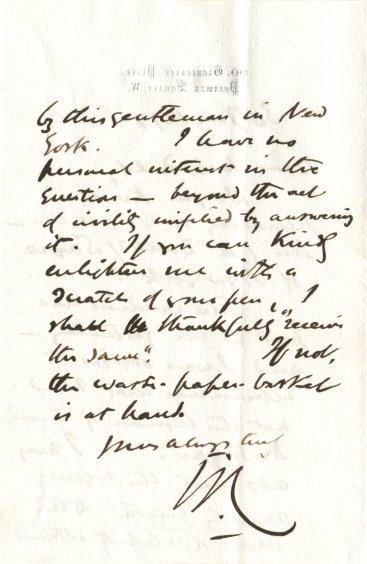 by this gentleman in New
York. I have no
personal interest in the
question — beyond the act
of civility implied by answering
it. If you can kindly
enlighten me with a
scratch of your pen, I
shall thankfully "receive
the same". If not,
the waste-paper-basket
is at hand.
Yours always truly
WC